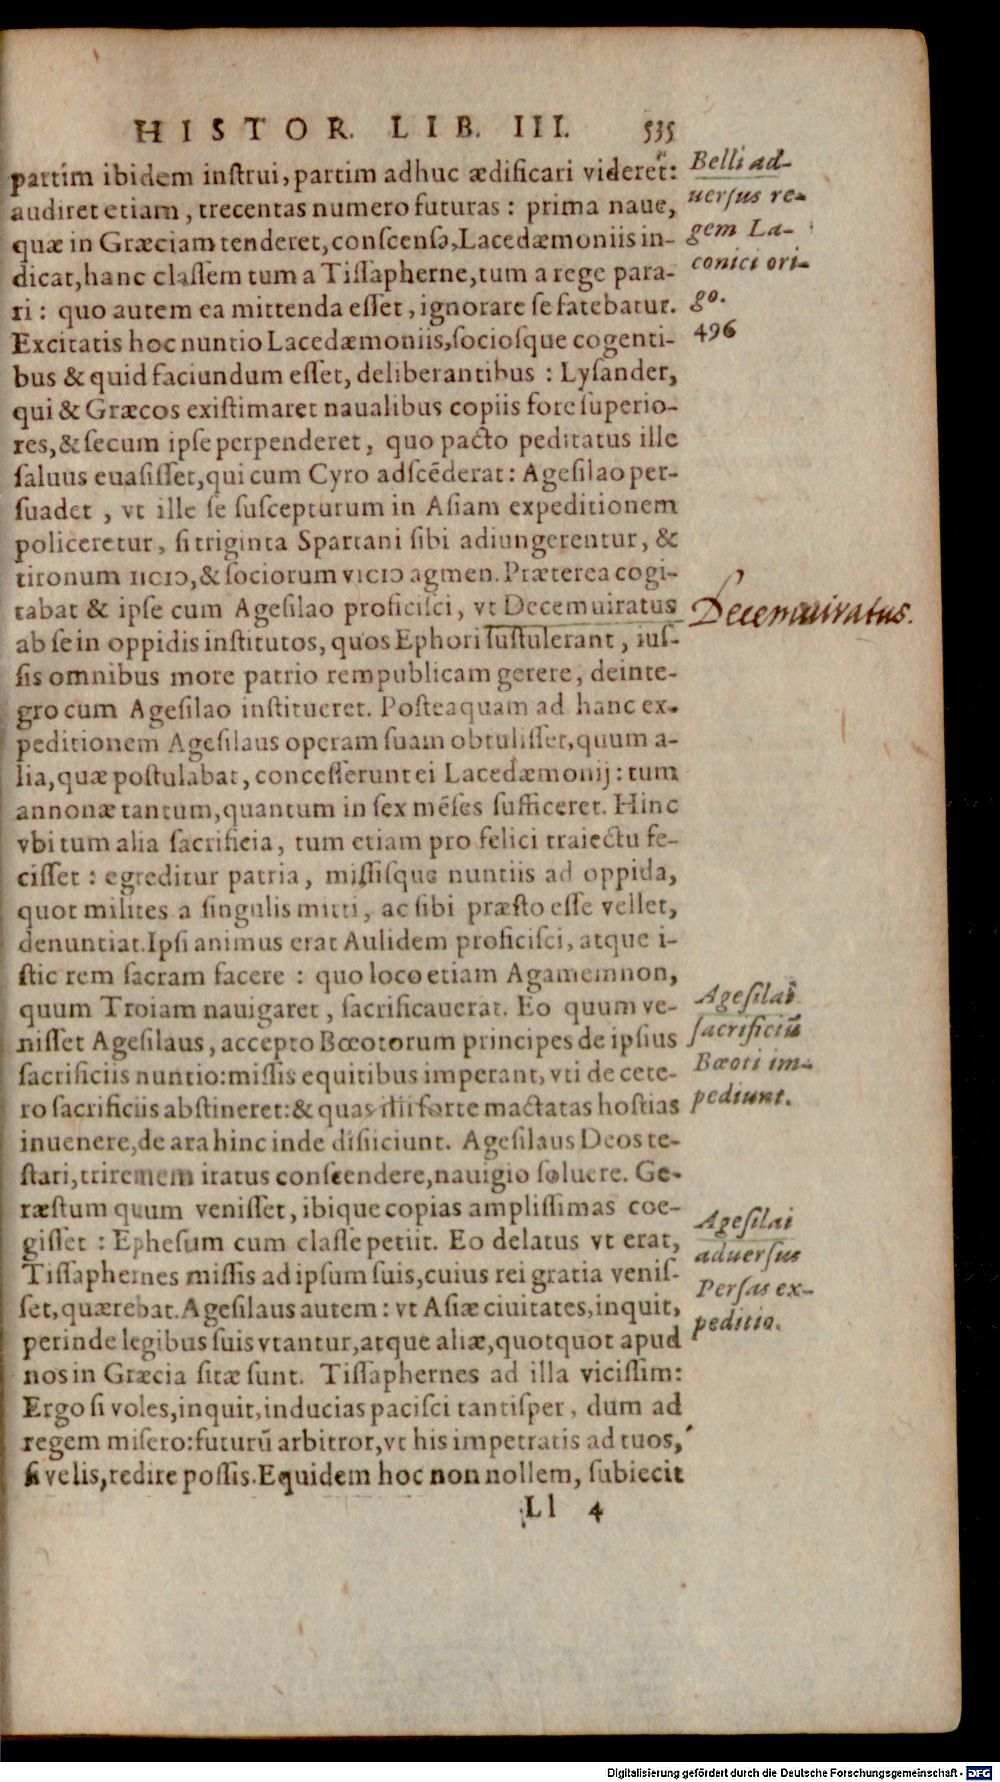 HISTOR. LIB. III. 535
partim ibidem instrui, partim adhuc ædificari videret:
audiret etiam, trecentas numero futuras: prima naue,
quæ in Græciam tenderet, conscensa, Lacedæmoniis in-
dicat, hanc classem tum a Tissapherne, tum a rege para-
ri: quo autem ea mittenda esset, ignorare se fatebatur.
Excitatis hoc nuntio Lacedæmoniis, sociosque cogenti-
bus & quid faciundum esset, deliberantibus: Lysander,
qui & Græcos existimaret naualibus copiis fore superio-
res, & secum ipse perpenderet, quo pacto peditatus ille
saluus euasisset, qui cum Cyro adscēderat: Agesilao per-
suadet, vt ille se suscepturum in Asiam expeditionem
policeretur, si triginta Spartani sibi adiungerentur, &
tironum IICIↃ, & sociorum VICIↃ agmen. Præterea cogi-
tabat & ipse cum Agesilao proficisci, vt Decemuiratus
ab se in oppidis institutos, quos Ephori sustulerant, ius-
sis omnibus more patrio rempublicam gerere, deinte-
gro cum Agesilao institueret. Posteaquam ad hanc ex-
peditionem Agesilaus operam suam obtulisset, quum a-
lia, quæ postulabat, concesserunt ei Lacedæmonij: tum
annonæ tantum, quantum in sex mēses sufficeret. Hinc
vbi tum alia sacrificia, tum etiam pro felici traiectu fe-
cisset: egreditur patria, missisque nuntiis ad oppida,
quot milites a singulis mitti, ac sibi præsto esse vellet,
denuntiat. Ipsi animus erat Aulidem proficisci, atque i-
stic rem sacram facere: quo loco etiam Agamemnon,
quum Troiam nauigaret, sacrificauerat. Eo quum ve-
nisset Agesilaus, accepto Bœotorum principes de ipsius
sacrificiis nuntio: missis equitibus imperant, vti de cete-
ro sacrificiis abstineret: & quas illi forte mactatas hostias
inuenere, de ara hinc inde disiiciunt. Agesilaus Deos te-
stari, triremem iratus conscendere, nauigio soluere. Ge-
ræstum quum venisset, ibique copias amplissimas coe-
gisset: Ephesum cum classe petiit. Eo delatus vt erat,
Tissaphernes missis ad ipsum suis, cuius rei gratia venis-
set, quærebat. Agesilaus autem: vt Asiæ ciuitates, inquit,
perinde legibus suis vtantur, atque aliæ, quotquot apud
nos in Græcia sitæ sunt. Tissaphernes ad illa vicissim:
Ergo si voles, inquit, inducias pacisci tantisper, dum ad
regem misero: futurū arbitror, vt his impetratis ad tuos,
si velis, redire possis. Equidem hoc non nollem, subiecit
Ll 4
Belli ad-
uersus re-
gem La-
conici ori-
go.
496
Decemuiratus.
Agesilai
sacrificiū
Bœoti im-
pediunt.
Agesilai
aduersus
Persas ex-
peditio.
Digitalisierung gefördert durch die Deutsche Forschungsgemeinschaft - DFG